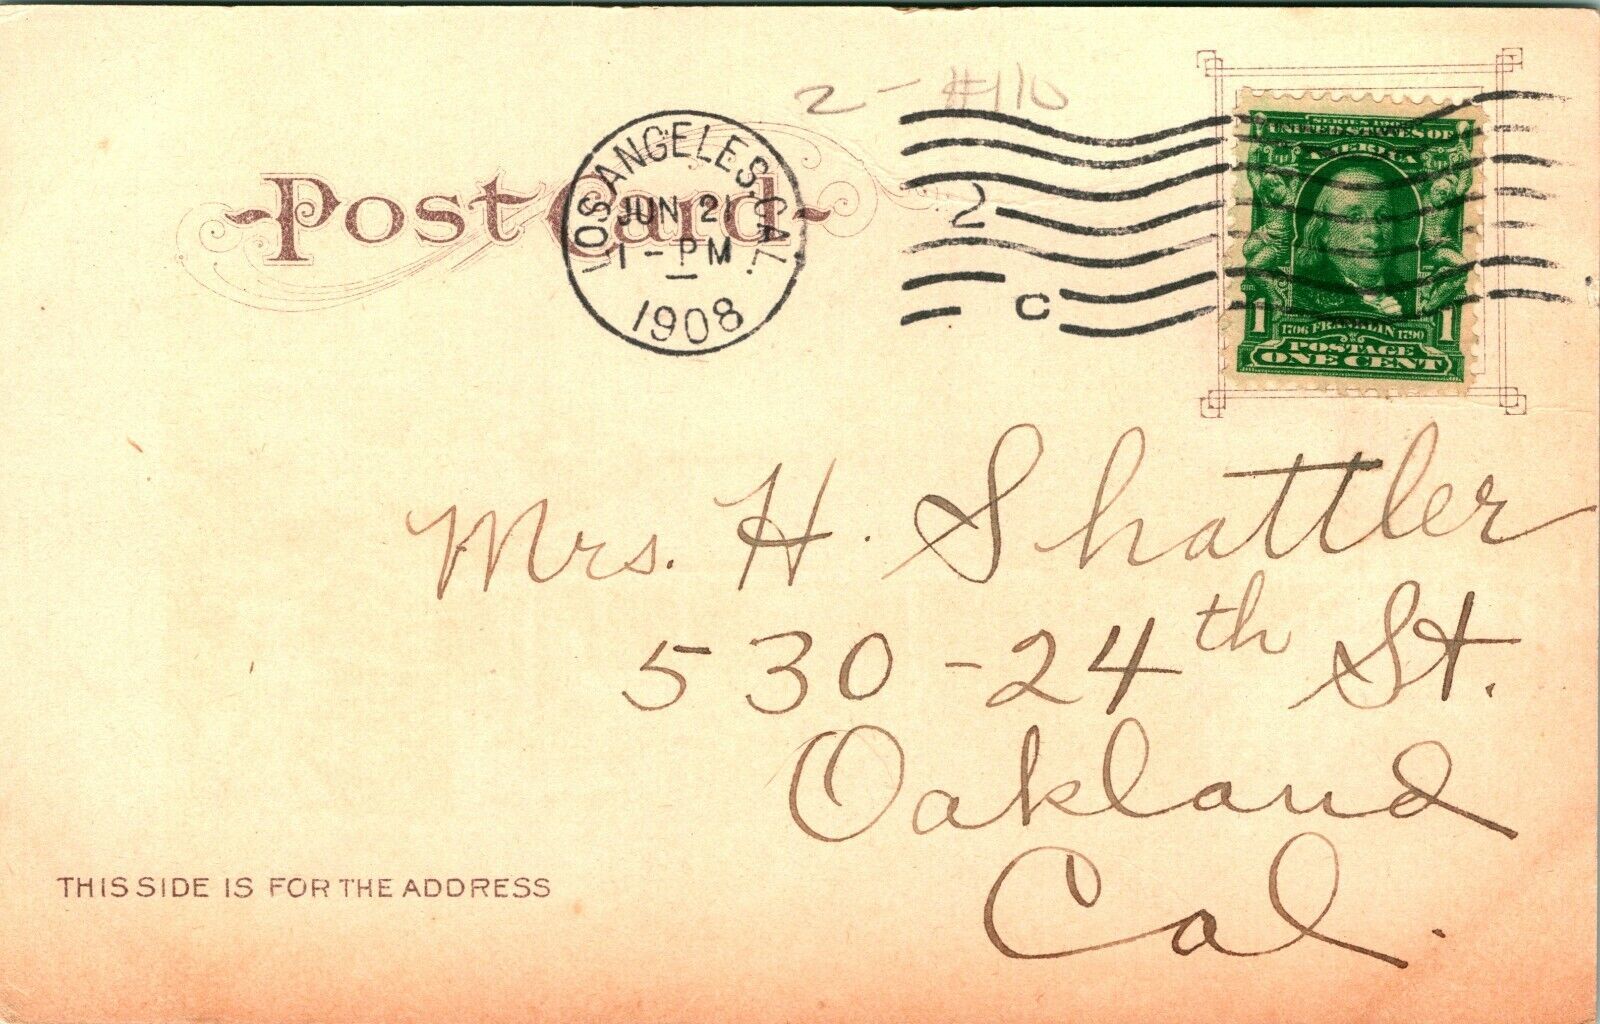 2 - #110
Post Card
LOS ANGELES, CAL.
JUN 21
1 - PM
1908
2
C
SERIES 1902
UNITED STATES OF
AMERICA
1 1706 FRANKLIN 1790 1
POSTAGE
ONE CENT
Mrs. H. Shattler
530 - 24th St.
Oakland
Cal.
THIS SIDE IS FOR THE ADDRESS